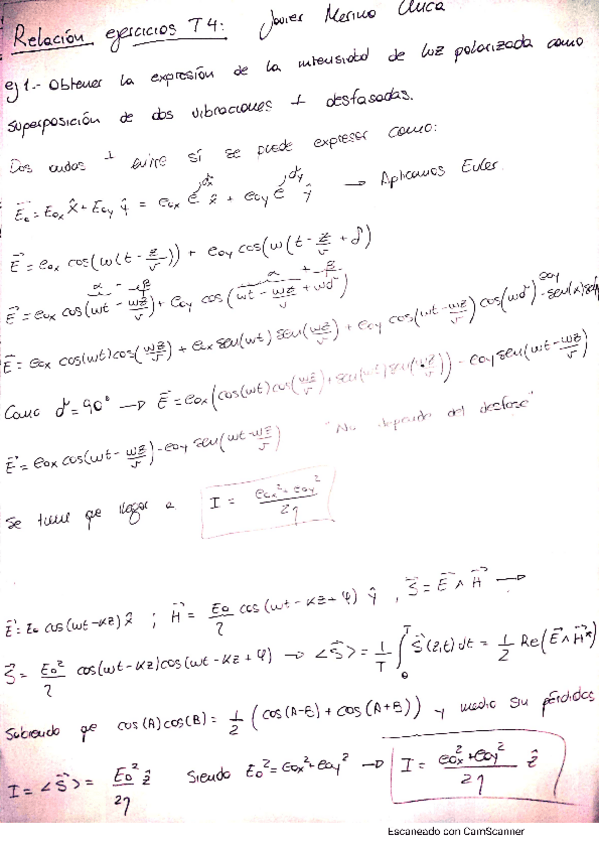 Relación ejercicios T4: Javier Merino
ej1.- Obtener la expresión de la intensidad de luz polarizada como
superposición de dos vibraciones ⊥ desfasadas.
Dos ondas ⊥ entre sí se puede expresar como:
E⃗₀ = E₀ₓ x̂ + E₀ᵧ ŷ = e₀ₓ e^(jδx) x̂ + e₀ᵧ e^(jδy) ŷ → Aplicamos Euler.
E⃗ = e₀ₓ cos(w(t - z/v)) + e₀ᵧ cos(w(t - z/v + δ)
α - β α + -β
E⃗ = e₀ₓ cos(wt - wz/v) + e₀ᵧ cos(wt - wz/v + wδ)
E⃗ = e₀ₓ cos(wt)cos(wz/v) + e₀ₓ sen(wt) sen(wz/v) + e₀ᵧ cos(wt - wz/v) cos(wδ) - e₀ᵧ
Como δ = 90° → E⃗ = e₀ₓ(cos(wt) cos(wz/v) + sen(wt) sen(wz/v)) - e₀ᵧ sen(wt - wz/v)
E⃗ = e₀ₓ cos(wt - wz/v) - e₀ᵧ sen(wt - wz/v) "No depende del desfase"
Se tiene que llegar a I = (e₀ₓ² + e₀ᵧ²)/2η
E⃗ = E₀ cos(wt - kz) x̂ ; H⃗ = E₀/η cos(wt - kz + φ) ŷ , S⃗ = E⃗ ∧ H⃗ →
S⃗ = E₀²/η cos(wt - kz) cos(wt - kz + φ) → <S⃗> = 1/T ∫₀ᵀ S⃗(z,t) dt = 1/2 Re(E⃗ ∧ H⃗*)
Sabiendo que cos(A)cos(B) = 1/2 (cos(A-B) + cos(A+B)) y medio sin pérdidas
I = <S⃗> = E₀²/2η ẑ siendo E₀² = e₀ₓ² + e₀ᵧ² → I = (e₀ₓ² + e₀ᵧ²)/2η ẑ
Escaneado con CamScanner